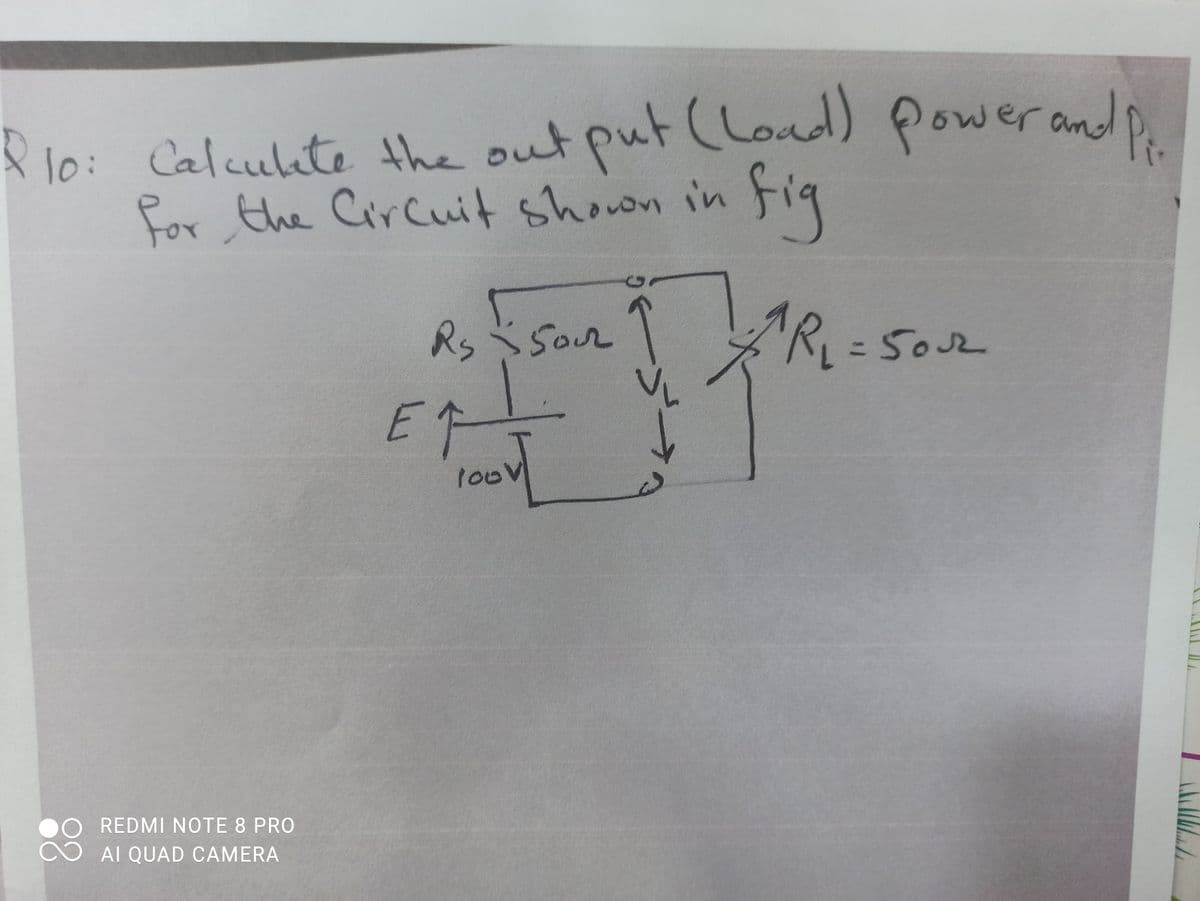 Q 10: Calculate the output (Load) power and Pi.
for the Circuit shown in fig
Rs 50Ω
RL = 50Ω
VL
E
100V
REDMI NOTE 8 PRO
AI QUAD CAMERA